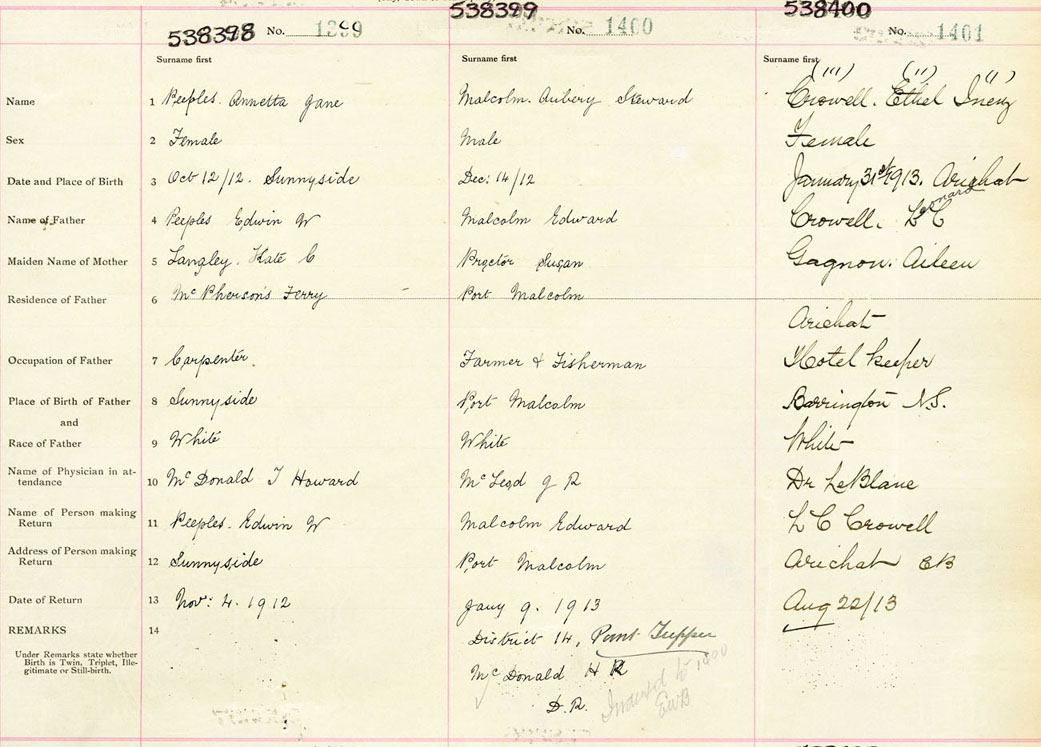 538398 No. 1399 538399 No. 1400 538400 No. 1401
Surname first Surname first Surname first
(III) (II) (I)
Name 1 Peeples. Annetta Jane Malcolm. Aubery Steward Crowell. Ethel Inez
Sex 2 Female Male Female
Date and Place of Birth 3 Oct 12/12. Sunnyside Dec: 14/12 January 31st 1913. Arichat
Name of Father 4 Peeples Edwin W Malcolm Edward Crowell. L C
Maiden Name of Mother 5 Langley. Kate C Proctor Susan Gagnon. Aileen
Residence of Father 6 McPherson's Ferry Port Malcolm
Arichat
Occupation of Father 7 Carpenter Farmer & Fisherman Hotel Keeper
Place of Birth of Father 8 Sunnyside Port Malcolm Barrington N.S.
and
Race of Father 9 White White White
Name of Physician in at-
tendance 10 McDonald J Howard McLeod J R Dr LeBlanc
Name of Person making
Return 11 Peeples. Edwin W Malcolm Edward L C Crowell
Address of Person making
Return 12 Sunnyside Port Malcolm Arichat CB
Date of Return 13 Nov: 4. 1912 Jany 9. 1913 Aug 22/13
REMARKS 14 District 14, Point Tupper
Under Remarks state whether
Birth is Twin, Triplet, Ille-
gitimate or Still-birth.
McDonald H R
D.R.
to 1400
EWB